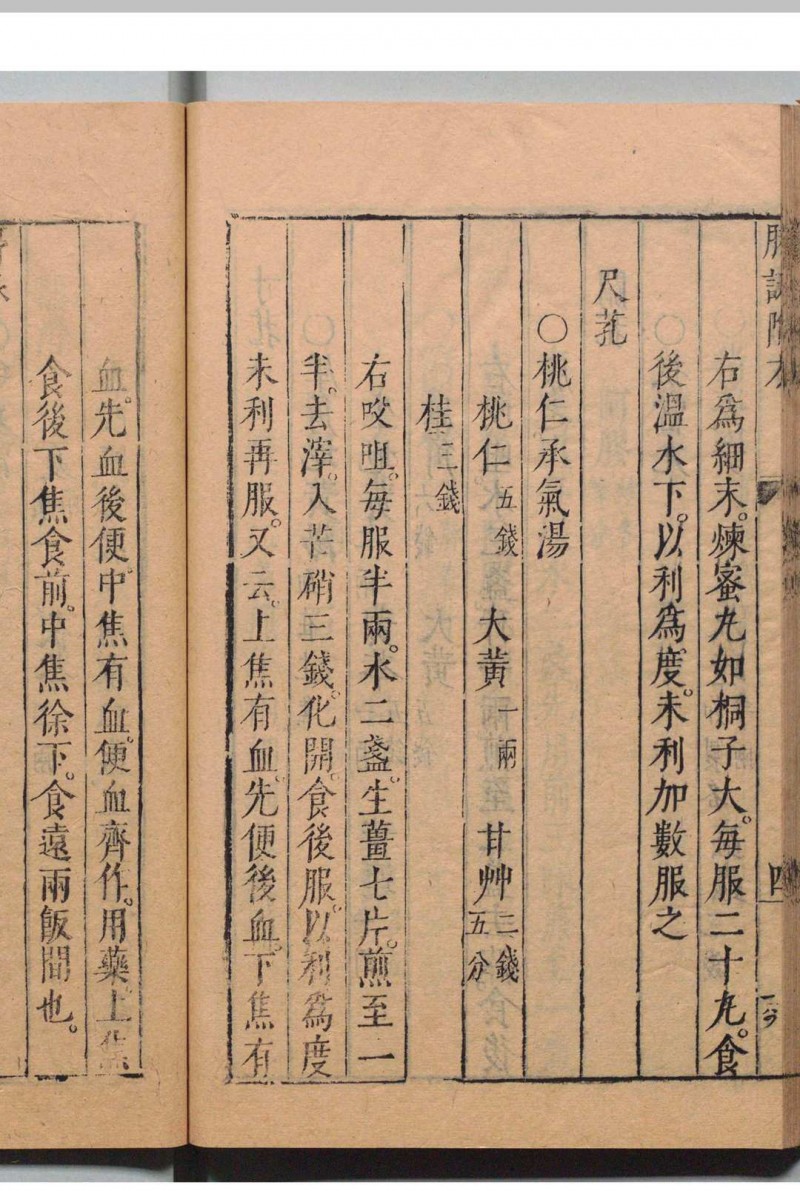 右爲細末。煉蜜丸如桐子大。每服二十丸。食
後溫水下。以利爲度。未利加數服之
尺芤
○桃仁承氣湯
桃仁五錢 大黃一兩 甘艸二錢五分
桂三錢
右㕮咀。每服半兩。水二盞。生薑七片。煎至一
半。去滓。入芒硝三錢。化開。食後服。以利爲度
未利再服。又云。上焦有血。先便後血。下焦有
血。先血後便。中焦有血。便血齊作。用藥。上焦
食後下焦食前。中焦徐下。食遠兩飯間也。